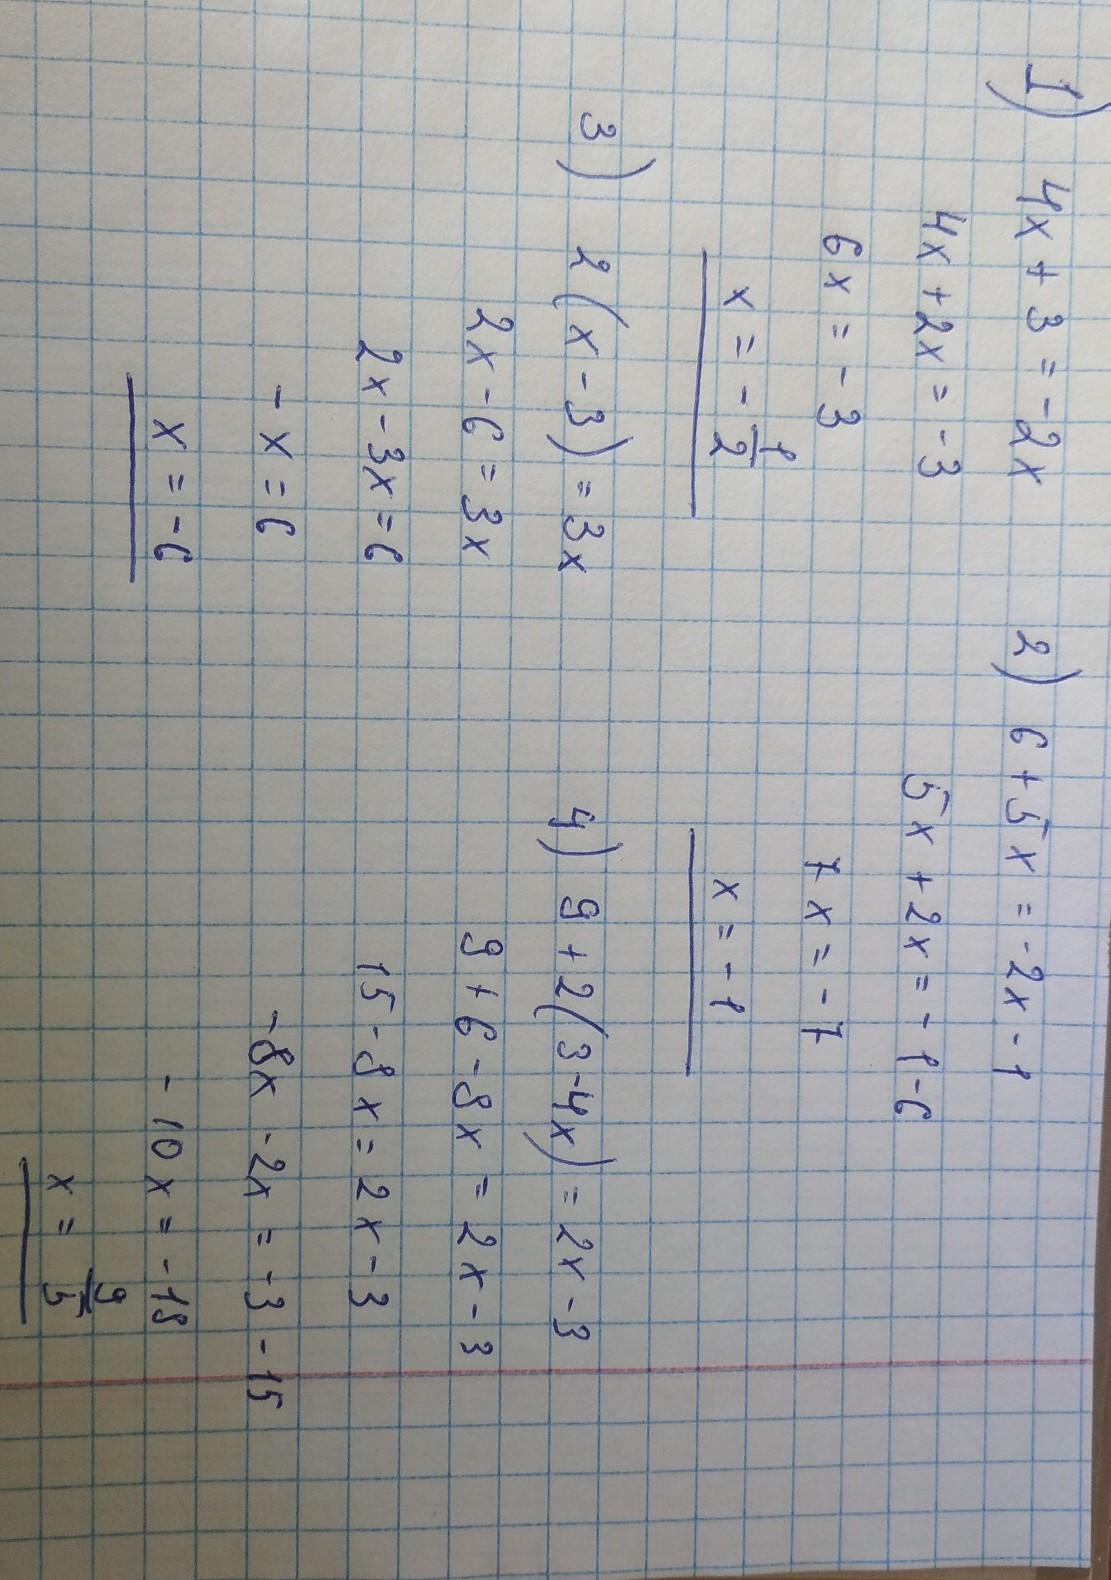 1) 4x + 3 = -2x
4x + 2x = -3
6x = -3
x = -1/2
2) 6 + 5x = -2x - 1
5x + 2x = -1 - 6
7x = -7
x = -1
3) 2(x - 3) = 3x
2x - 6 = 3x
2x - 3x = 6
-x = 6
x = -6
4) 9 + 2(3 - 4x) = 2x - 3
9 + 6 - 8x = 2x - 3
15 - 8x = 2x - 3
-8x - 2x = -3 - 15
-10x = -18
x = 9/5